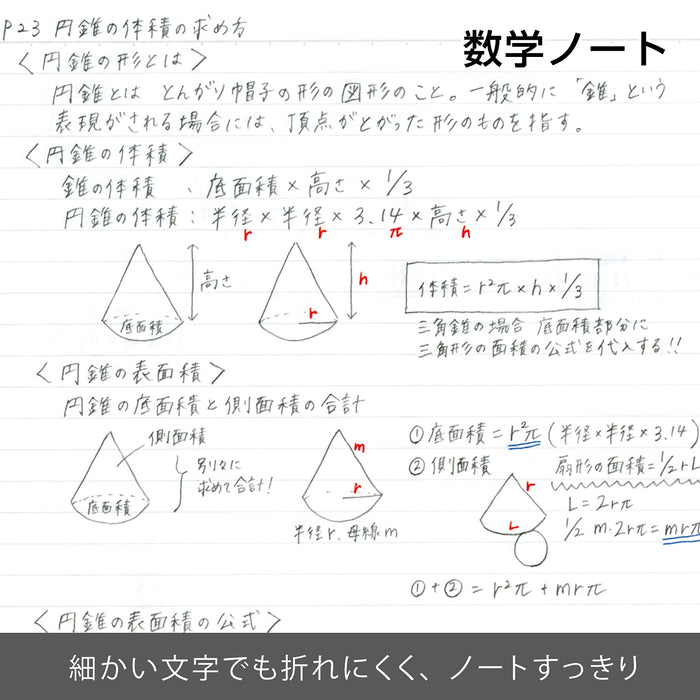 数学ノート
P23 円錐の体積の求め方
〈円錐の形とは〉
円錐とは とんがり帽子の形の図形のこと。一般的に「錐」という
表現がされる場合には、頂点がとがった形のものを指す。
〈円錐の体積〉
錐の体積 、底面積×高さ×1/3
円錐の体積：半径×半径×3.14×高さ×1/3
r r π h
高さ
底面積
r
h
体積=r²π×h×1/3
三角錐の場合 底面積部分に
三角形の面積の公式を代入する!!
〈円錐の表面積〉
円錐の底面積と側面積の合計
側面積
底面積
別々に
求めて合計!
m
r
半径r、母線m
①底面積=r²π(半径×半径×3.14)
②側面積 扇形の面積=1/2rL
r
L
L=2rπ
1/2 m・2rπ=mrπ
①+②=r²π+mrπ
〈円錐の表面積の公式〉
細かい文字でも折れにくく、ノートすっきり